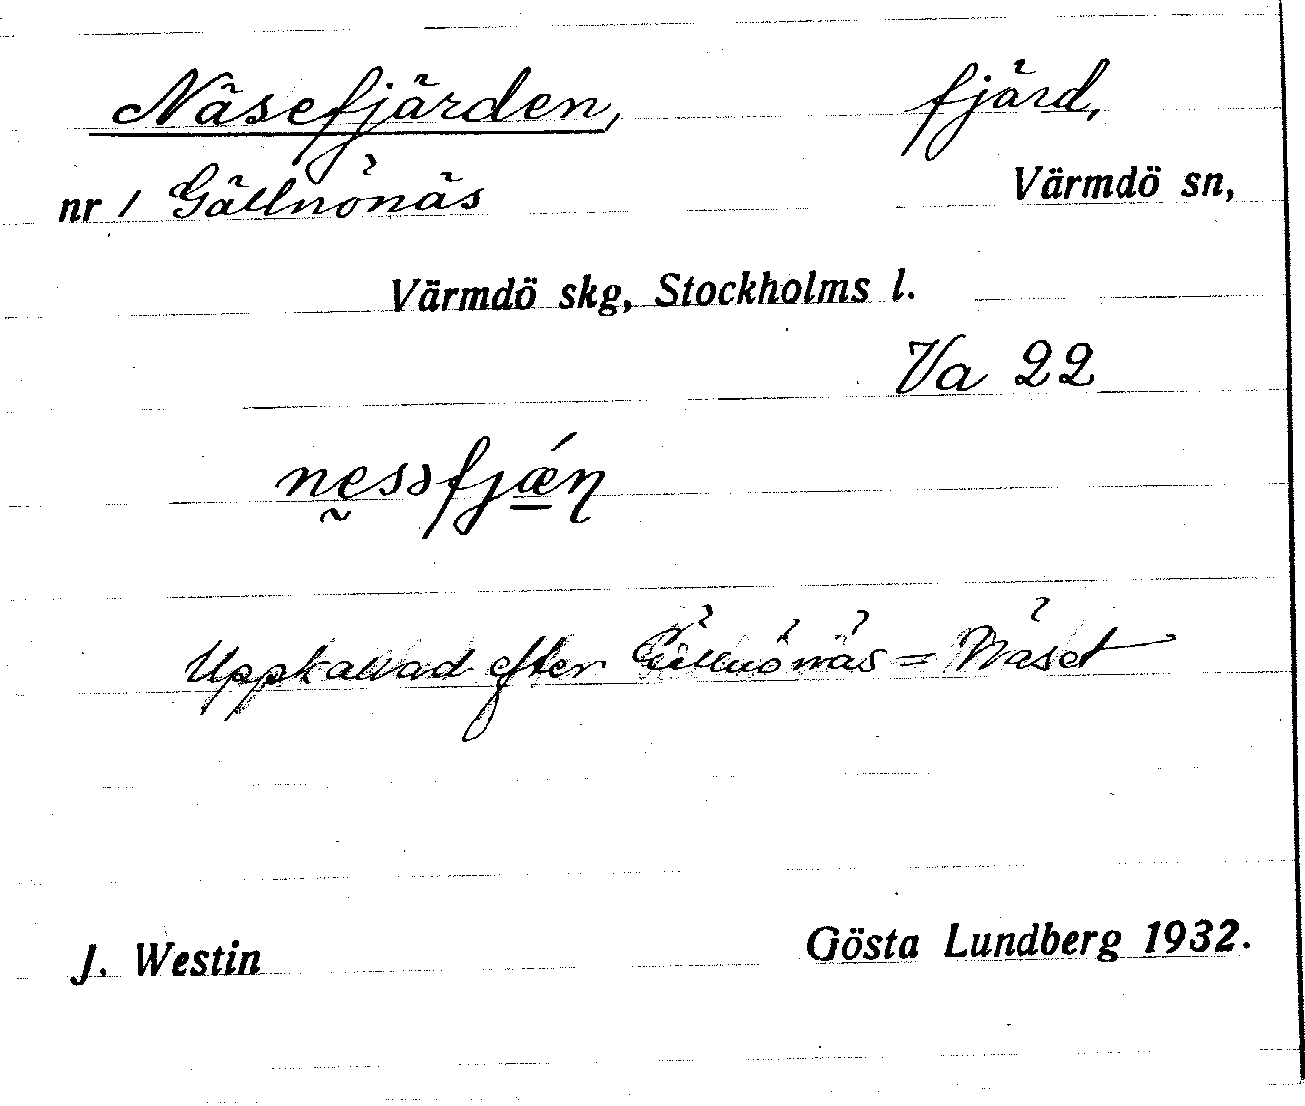 Näsefjärden, fjärd,
nr 1 Gällnönäs Värmdö sn,
Värmdö skg, Stockholms l.
Va 22
nessfjǽn
Uppkallad efter Gällnönäs = Näset
J. Westin Gösta Lundberg 1932.